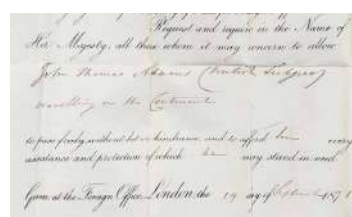 Request and require in the Name of
Her Majesty, all those whom it may concern to allow
John Thomas Adams (British Subject)
travelling on the Continent
to pass freely, without let or hindrance, and to afford him every
assistance and protection of which he may stand in need.
Given at the Foreign Office, London, the 19 day of September 187